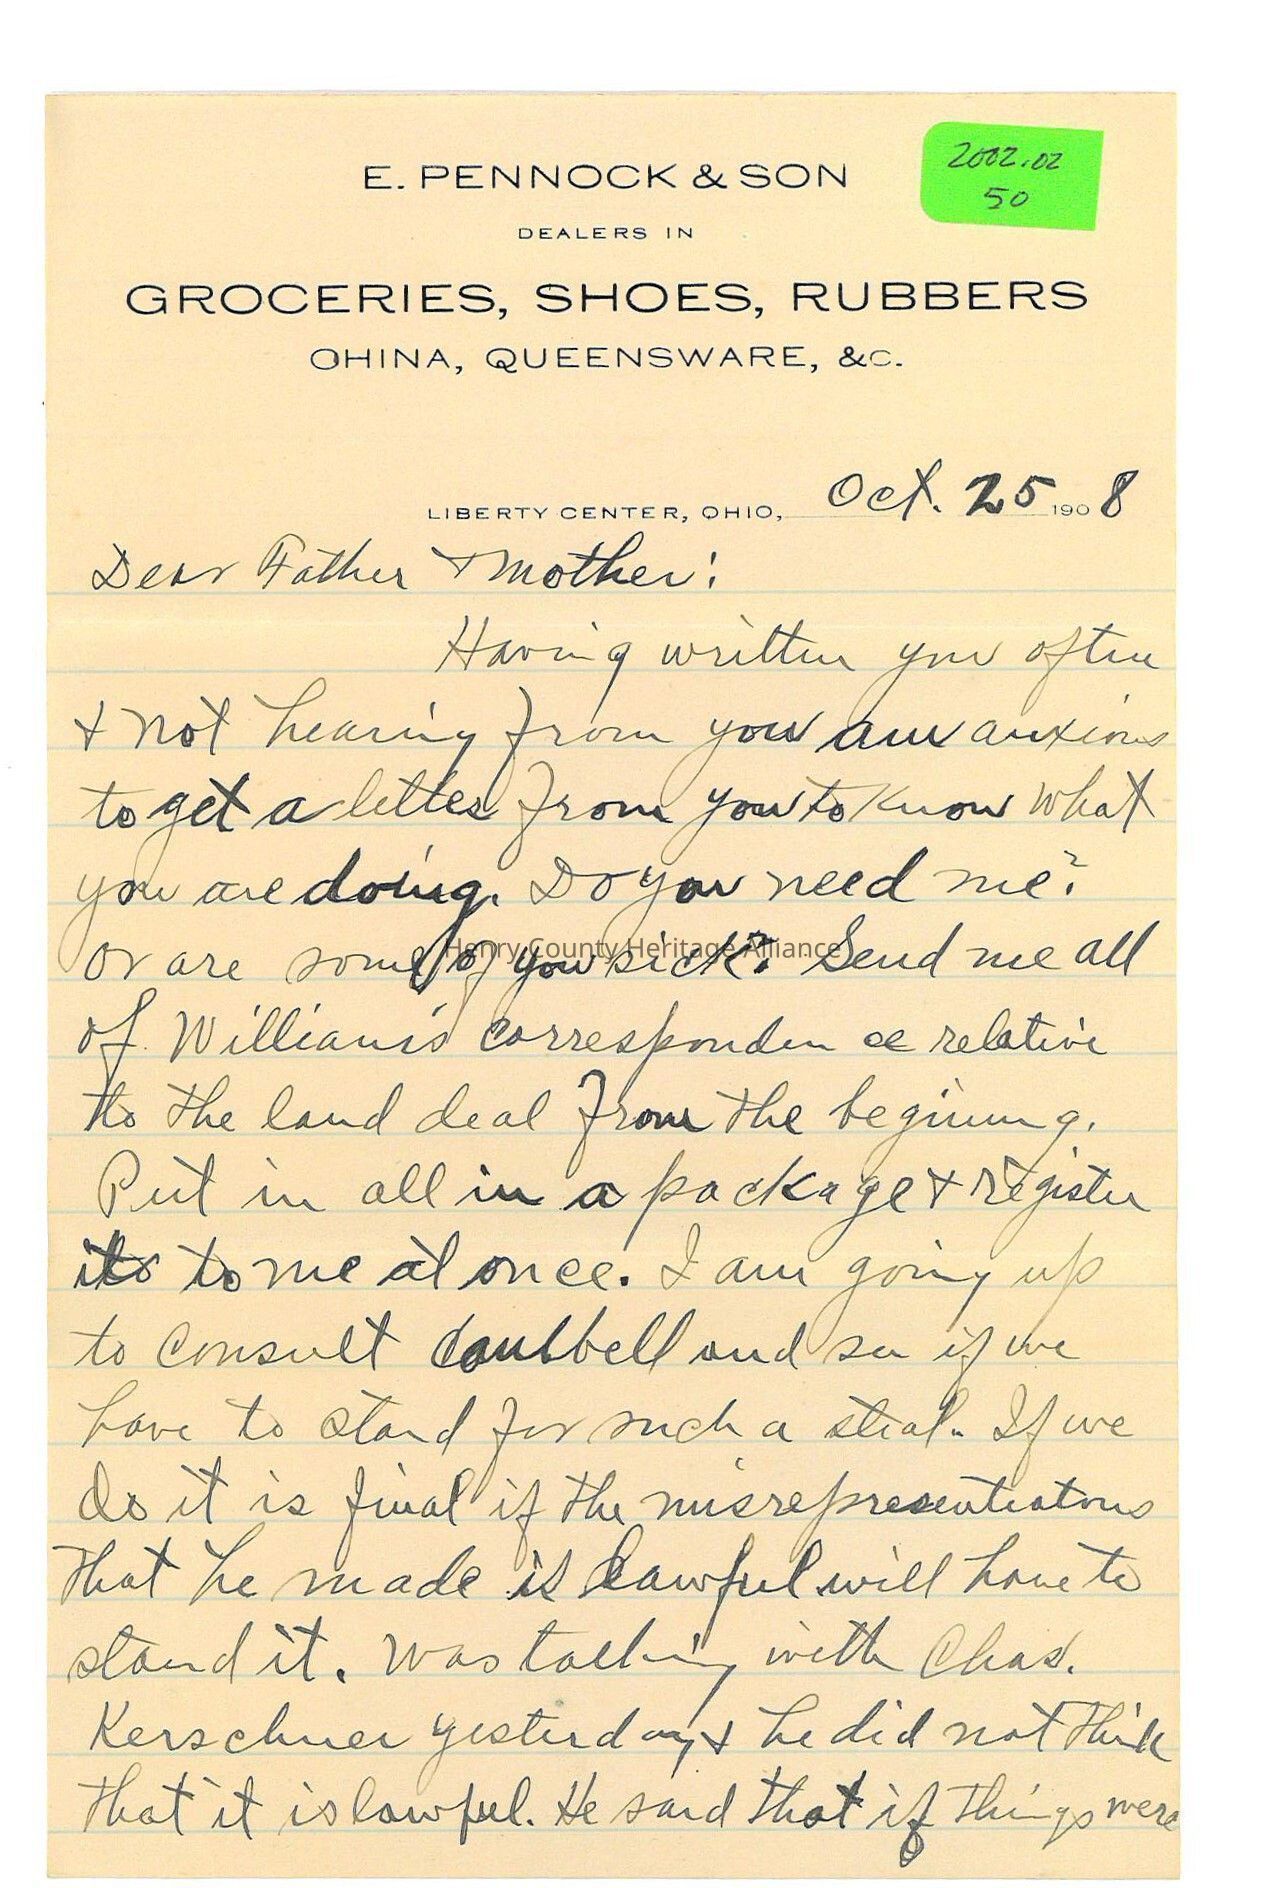 E. PENNOCK & SON
2002.02
50
DEALERS IN
GROCERIES, SHOES, RUBBERS
CHINA, QUEENSWARE, &C.
LIBERTY CENTER, OHIO, Oct. 25 1908
Dear Father & Mother:
Having written you often
& not hearing from you am anxious
to get a letter from you to know what
you are doing. Do you need me?
or are some of you sick? Send me all
Henry County Heritage Alliance
of William's correspondence relative
to the land deal from the begining.
Put in all in a package & register
to me at once. I am going up
to consult and see if we
have to stand for such a steal. If we
do it is final if the misrepresentations
that he made is lawful will have to
stand it. Was talking with Chas.
Kerschner yesterday & he did not think
that it is lawful. He said that if things were